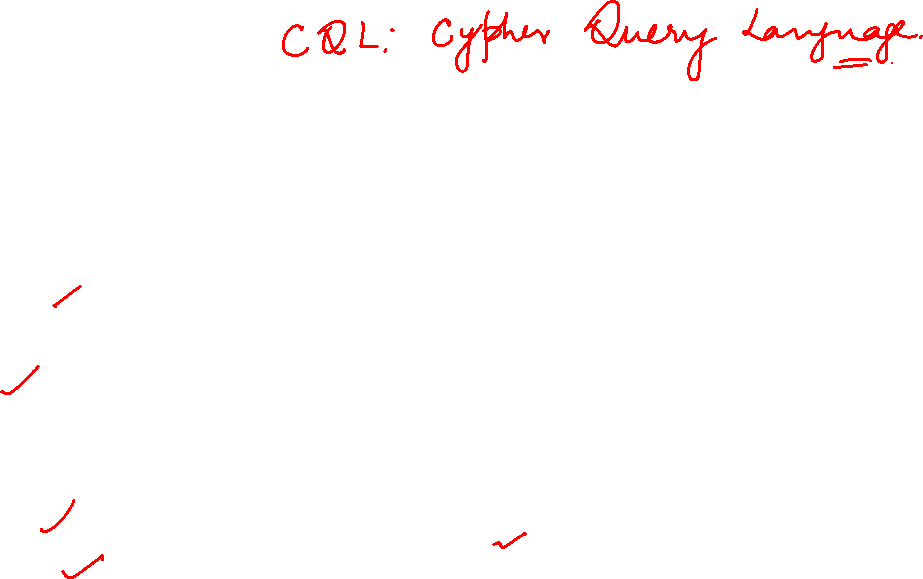 CQL: Cypher Query Language.